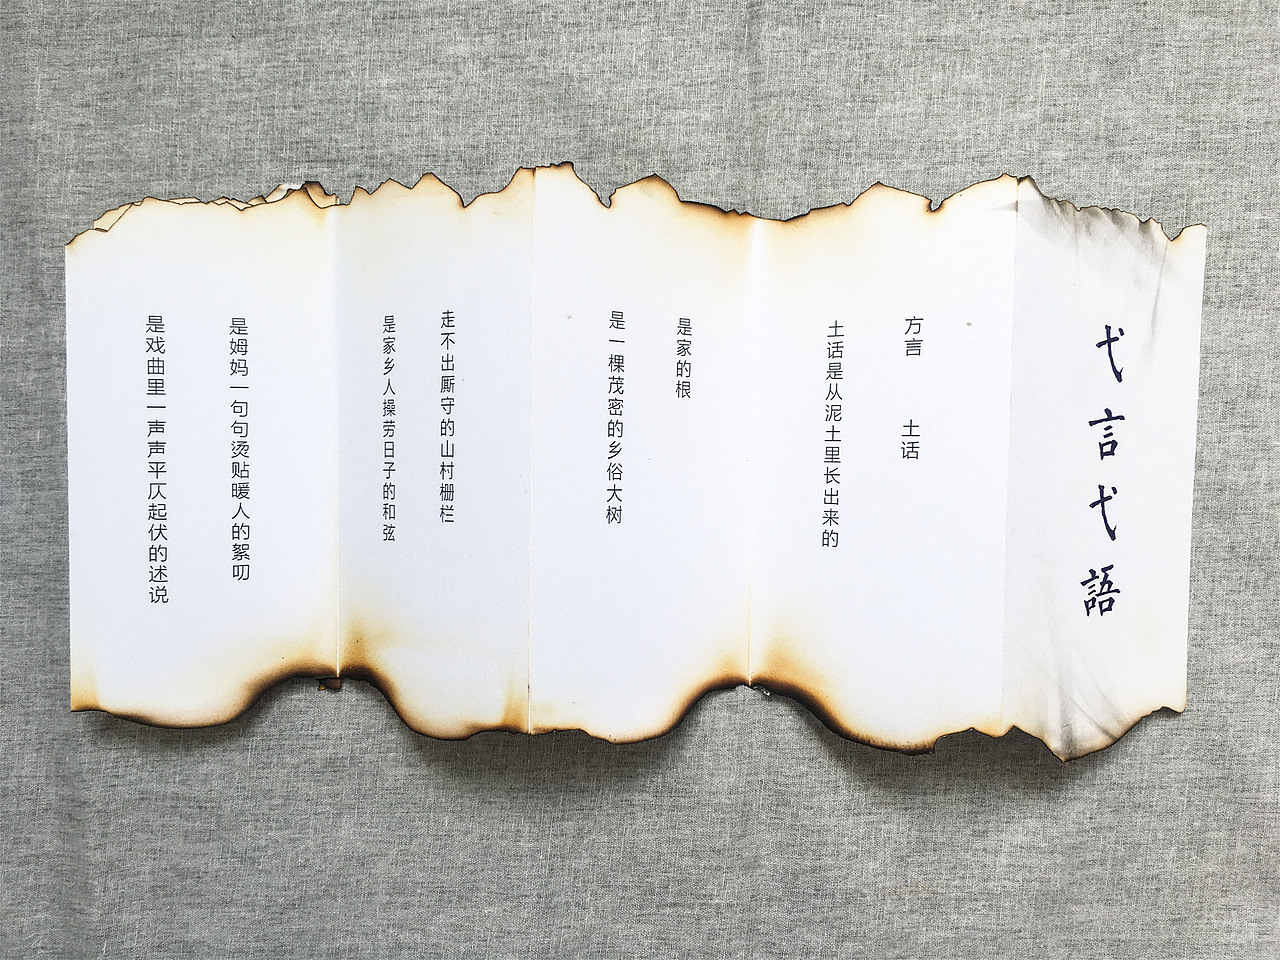 弋言弋語
方言　土话
土话是从泥土里长出来的
是家的根
是一棵茂密的乡俗大树
走不出厮守的山村栅栏
是家乡人操劳日子的和弦
是姆妈一句句烫贴暖人的絮叨
是戏曲里一声声平仄起伏的述说